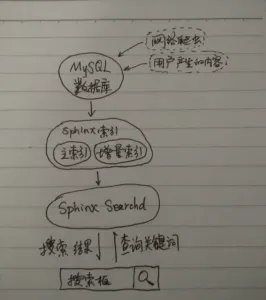 网络爬虫
用户产生的内容
MySQL
数据库
Sphinx 索引
主索引 增量索引
Sphinx Searchd
搜索结果 查询关键词
搜索框